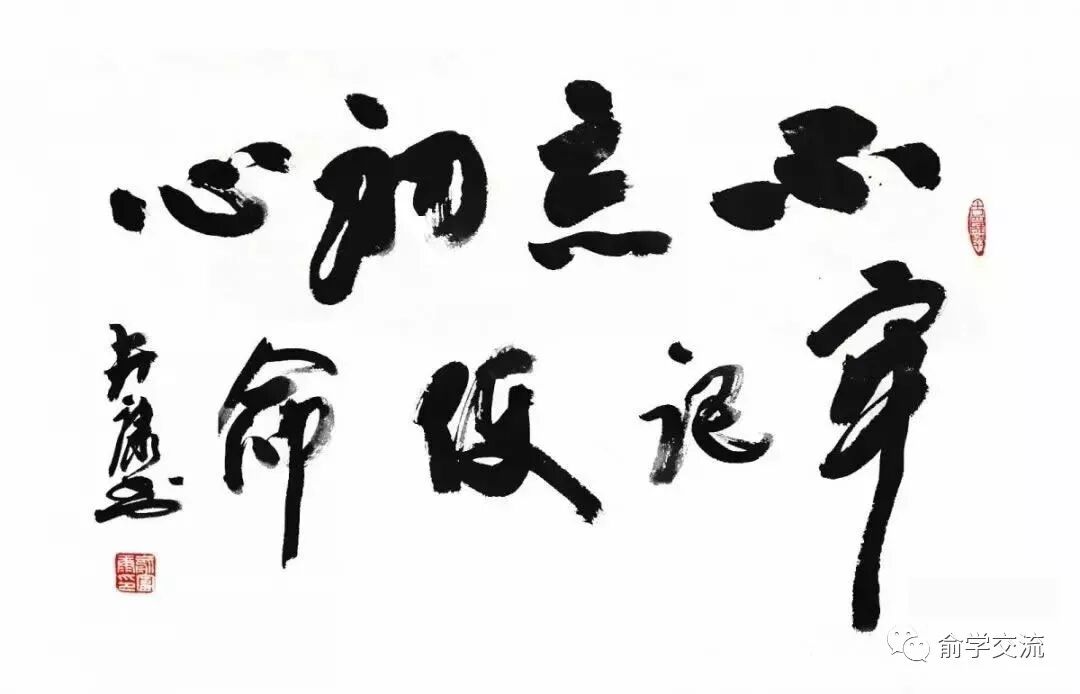 不忘初心
牢记使命
俞学交流